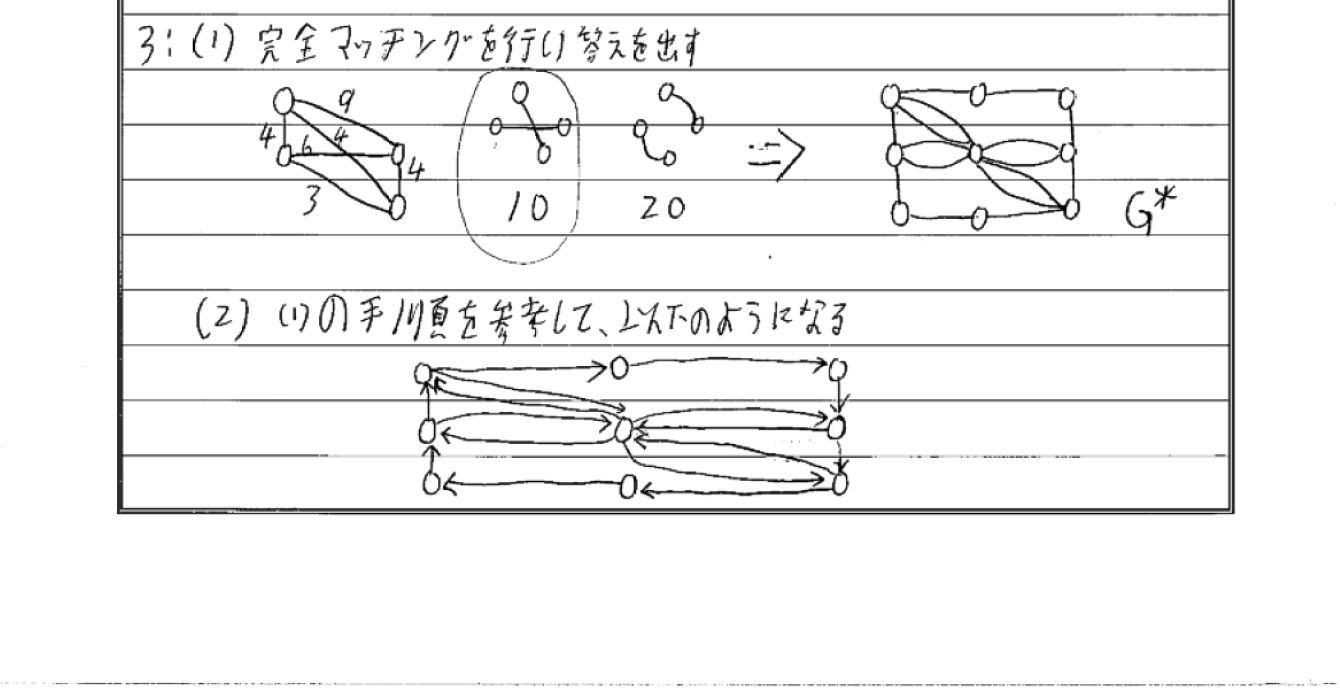 3:(1) 完全マッチングを行い答えを出す
9
4 6 4 4
3 10 20 G*
(2) (1)の手順を参考して、以下のようになる